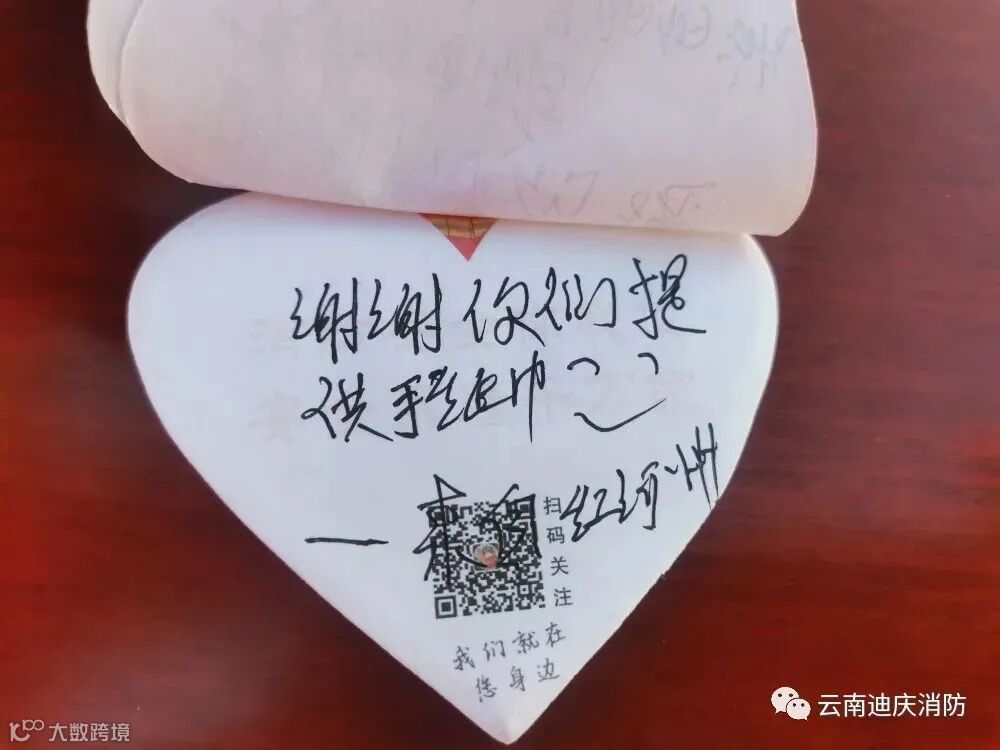 谢谢你们提
供手纸巾
——来自红河州
扫码关注
我们就在
您身边
云南迪庆消防
10100 大数跨境